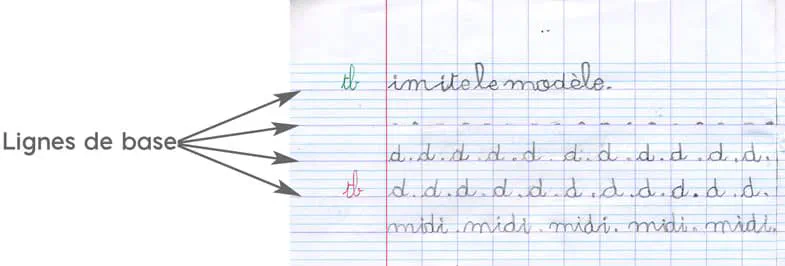 tb imite le modèle.
Lignes de base
d.d.d.d.d.d.d.d.d.d.d.
tb d.d.d.d.d.d.d.d.d.d.d.
midi.midi.midi.midi.midi.